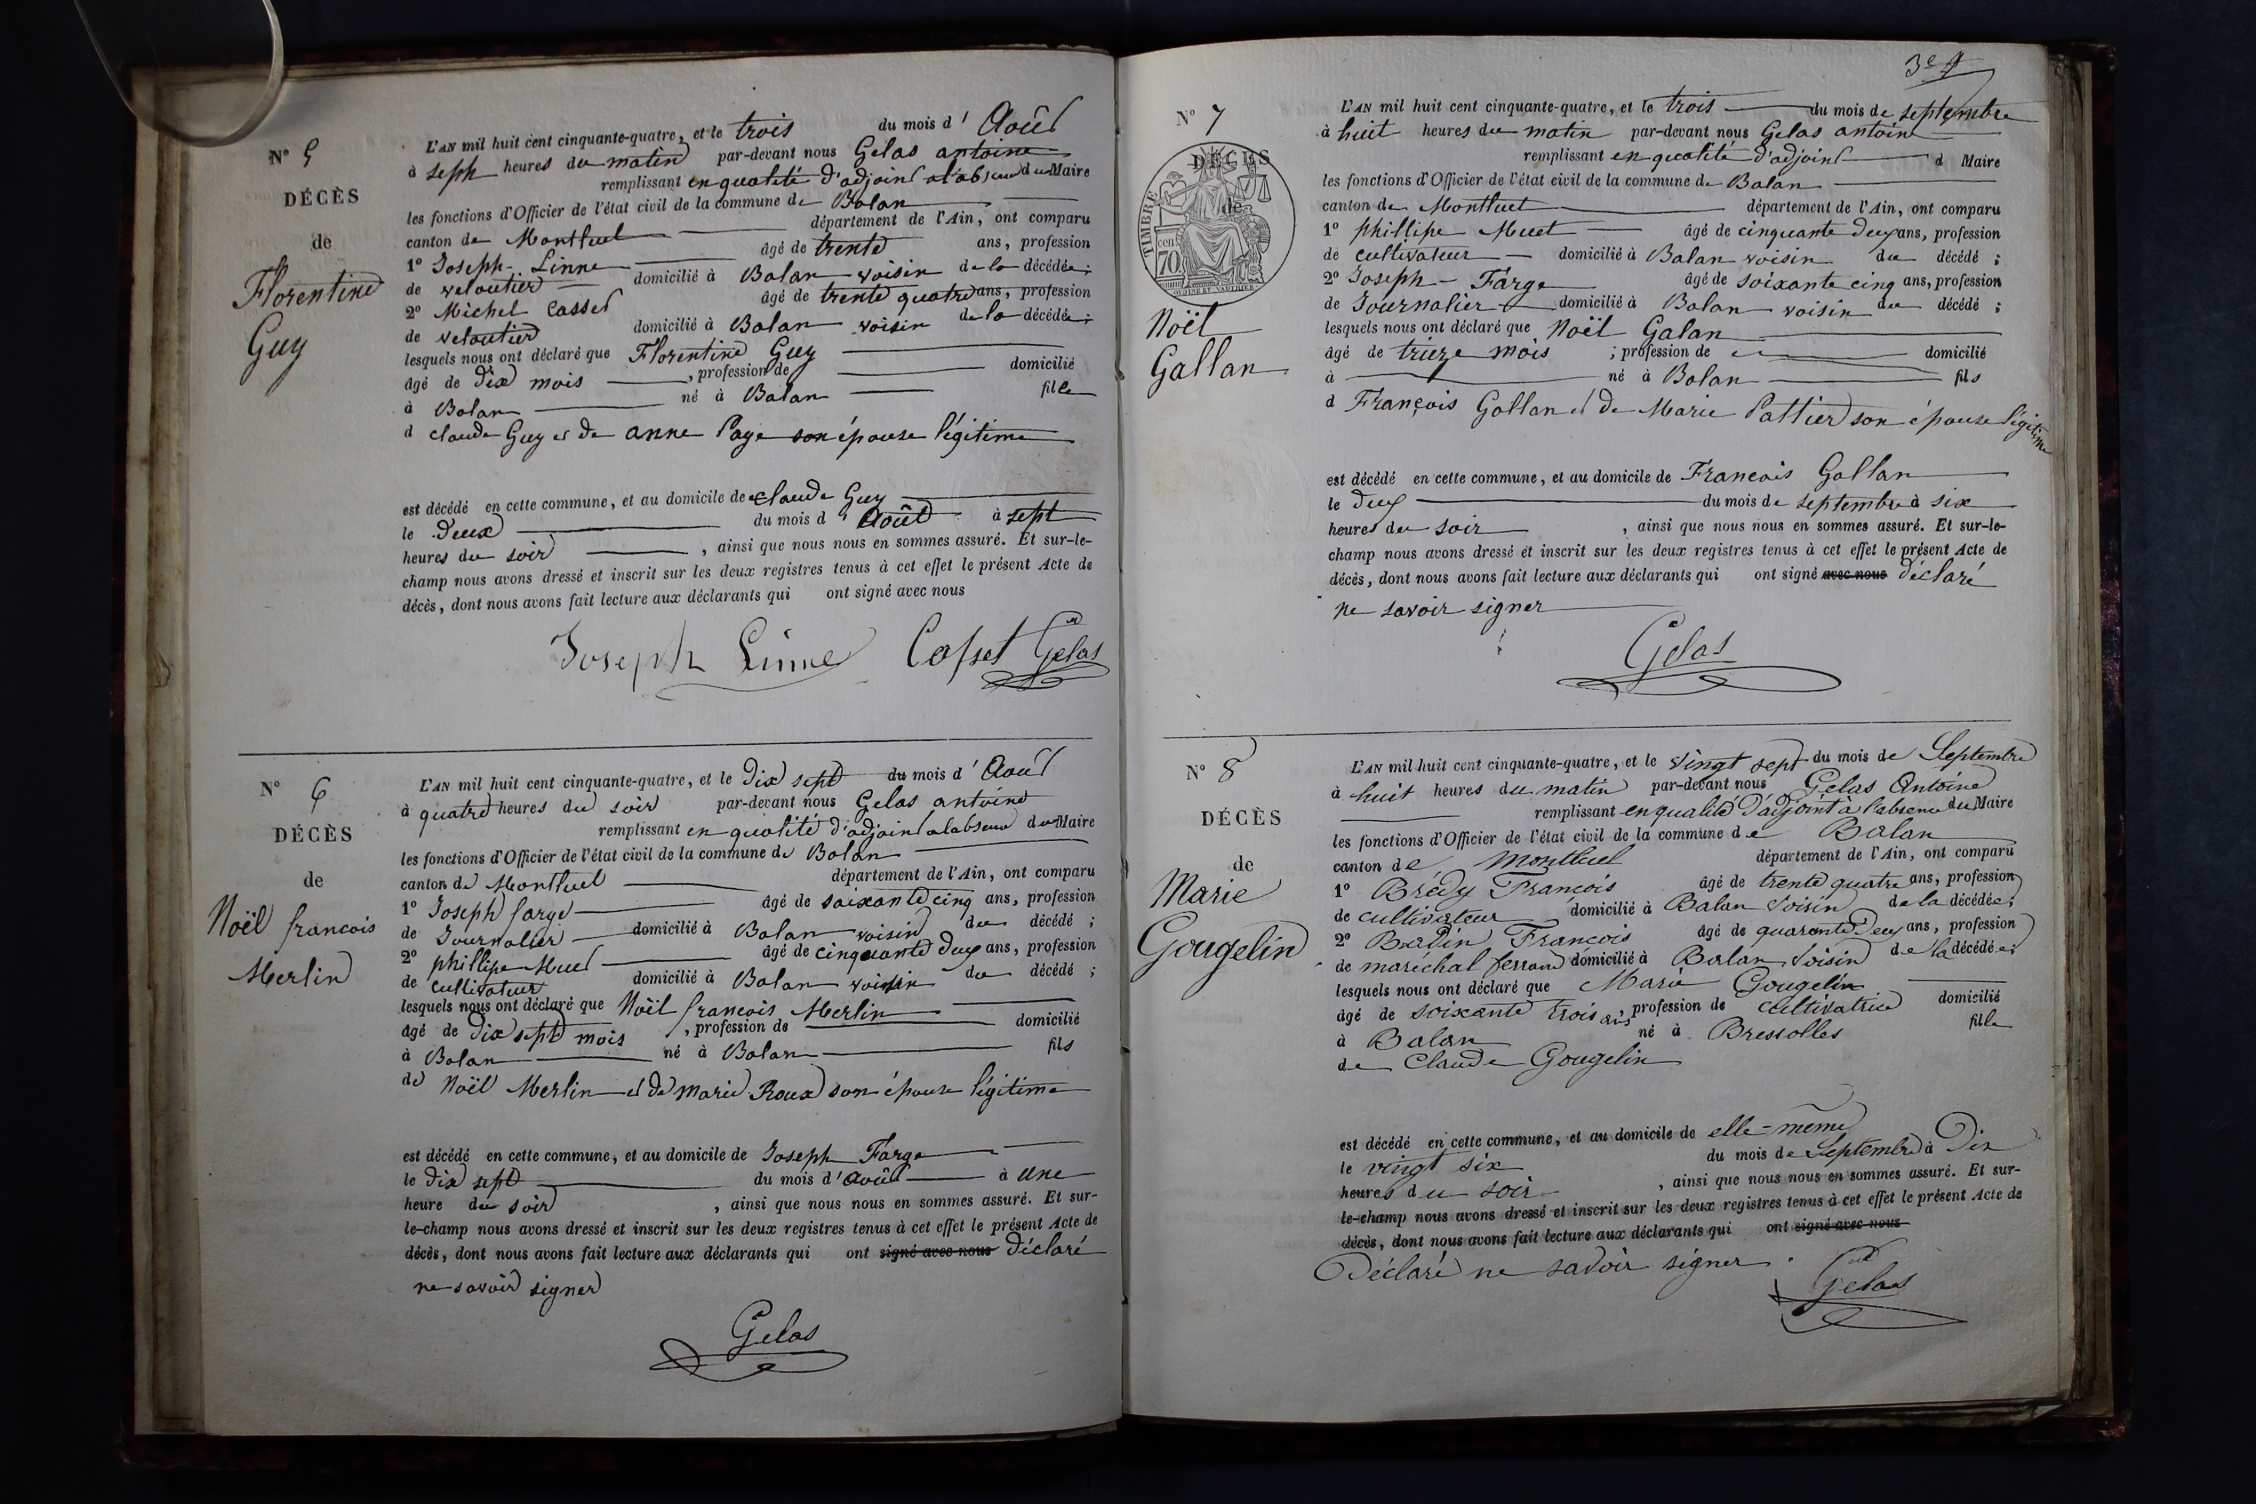 N° 5
DÉCÈS
de
Florentine
Guy
L'AN mil huit cent cinquante-quatre, et le trois du mois d' Août
à seph heures du matin par-devant nous Gelas antoine
remplissant en qualité d'adjoint a l'absence du Maire
les fonctions d'Officier de l'état civil de la commune de Balan
canton de Montluel département de l'Ain, ont comparu
1° Joseph Linne âgé de trente ans, profession
de veloutier domicilié à Balan voisin de la décédée ;
2° Michel Casset âgé de trente quatre ans, profession
de veloutier domicilié à Balan voisin de la décédée ;
lesquels nous ont déclaré que Florentine Guy
âgé de dix mois , profession de domicilié
à Balan né à Balan fille
d claude Guy et de anne Page son épouse légitime
est décédé en cette commune, et au domicile de claude Guy
le Deux du mois d' Août à sept
heures du soir , ainsi que nous nous en sommes assuré. Et sur-le-
champ nous avons dressé et inscrit sur les deux registres tenus à cet effet le présent Acte de
décès, dont nous avons fait lecture aux déclarants qui ont signé avec nous
Joseph Linne Casset Gelas
N° 6
DÉCÈS
de
Noël francois
Merlin
L'AN mil huit cent cinquante-quatre, et le Dix sept du mois d' Août
à quatre heures du soir par-devant nous Gelas antoine
remplissant en qualité d'adjoint a labsence du Maire
les fonctions d'Officier de l'état civil de la commune de Balan
canton de Montluel département de l'Ain, ont comparu
1° Joseph farge âgé de soixante cinq ans, profession
de Journalier domicilié à Balan voisin du décédé ;
2° phillipe Muet âgé de cinquante Deux ans, profession
de cultivateur domicilié à Balan voisin du décédé ;
lesquels nous ont déclaré que Noël francois Merlin
âgé de Dix sept mois , profession de domicilié
à Balan né à Balan fils
de Noël Merlin et de Marie Roux son épouse légitime
est décédé en cette commune, et au domicile de Joseph Farge
le Dix sept du mois d' Août à une
heure du soir , ainsi que nous nous en sommes assuré. Et sur-
le-champ nous avons dressé et inscrit sur les deux registres tenus à cet effet le présent Acte de
décès, dont nous avons fait lecture aux déclarants qui ont signé avec nous Déclaré
ne savoir signer
Gelas
N° 7
DÉCÈS
de
TIMBRE
cen
70
Noël
Gallan
L'AN mil huit cent cinquante-quatre, et le trois du mois de septembre
à huit heures du matin par-devant nous Gelas antoine
remplissant en qualité d'adjoint d Maire
les fonctions d'Officier de l'état civil de la commune de Balan
canton de Montluet département de l'Ain, ont comparu
1° phillipe Muet âgé de cinquante Deux ans, profession
de cultivateur domicilié à Balan voisin du décédé ;
2° Joseph Farge âgé de soixante cinq ans, profession
de Journalier domicilié à Balan voisin du décédé ;
lesquels nous ont déclaré que Noël Galan
âgé de trieze mois ; profession de domicilié
à né à Balan fils
d François Gallan et De Marie Pattier son épouse légitime
est décédé en cette commune, et au domicile de Francois Gallan
le Deux du mois de septembre à six
heures du soir , ainsi que nous nous en sommes assuré. Et sur-le-
champ nous avons dressé et inscrit sur les deux registres tenus à cet effet le présent Acte de
décès, dont nous avons fait lecture aux déclarants qui ont signé avec nous déclaré
ne savoir signer
Gelas
N° 8
DÉCÈS
de
Marie
Gougelin
L'AN mil huit cent cinquante-quatre, et le vingt sept du mois de Septembre
à huit heures du matin par-devant nous Gelas Antoine
remplissant en qualité D'adjoint à l'absence du Maire
les fonctions d'Officier de l'état civil de la commune de Balan
canton de Montluel département de l'Ain, ont comparu
1° Brédy François âgé de trente quatre ans, profession
de cultivateur domicilié à Balan Voisin de la décédée ;
2° Badin François âgé de quarante Deux ans, profession
de maréchal ferrant domicilié à Balan Voisin de la décédée ;
lesquels nous ont déclaré que Marie Gougelin
âgé de soixante trois ans , profession de Cultivatrice domicilié
à Balan né à Bressolles fille
de Claude Gougelin
est décédé en cette commune, et au domicile de elle-même
le vingt six du mois de Septembre à Dix
heures du soir , ainsi que nous nous en sommes assuré. Et sur-
le-champ nous avons dressé et inscrit sur les deux registres tenus à cet effet le présent Acte de
décès, dont nous avons fait lecture aux déclarants qui ont signé avec nous
Déclaré ne savoir signer
Gelas